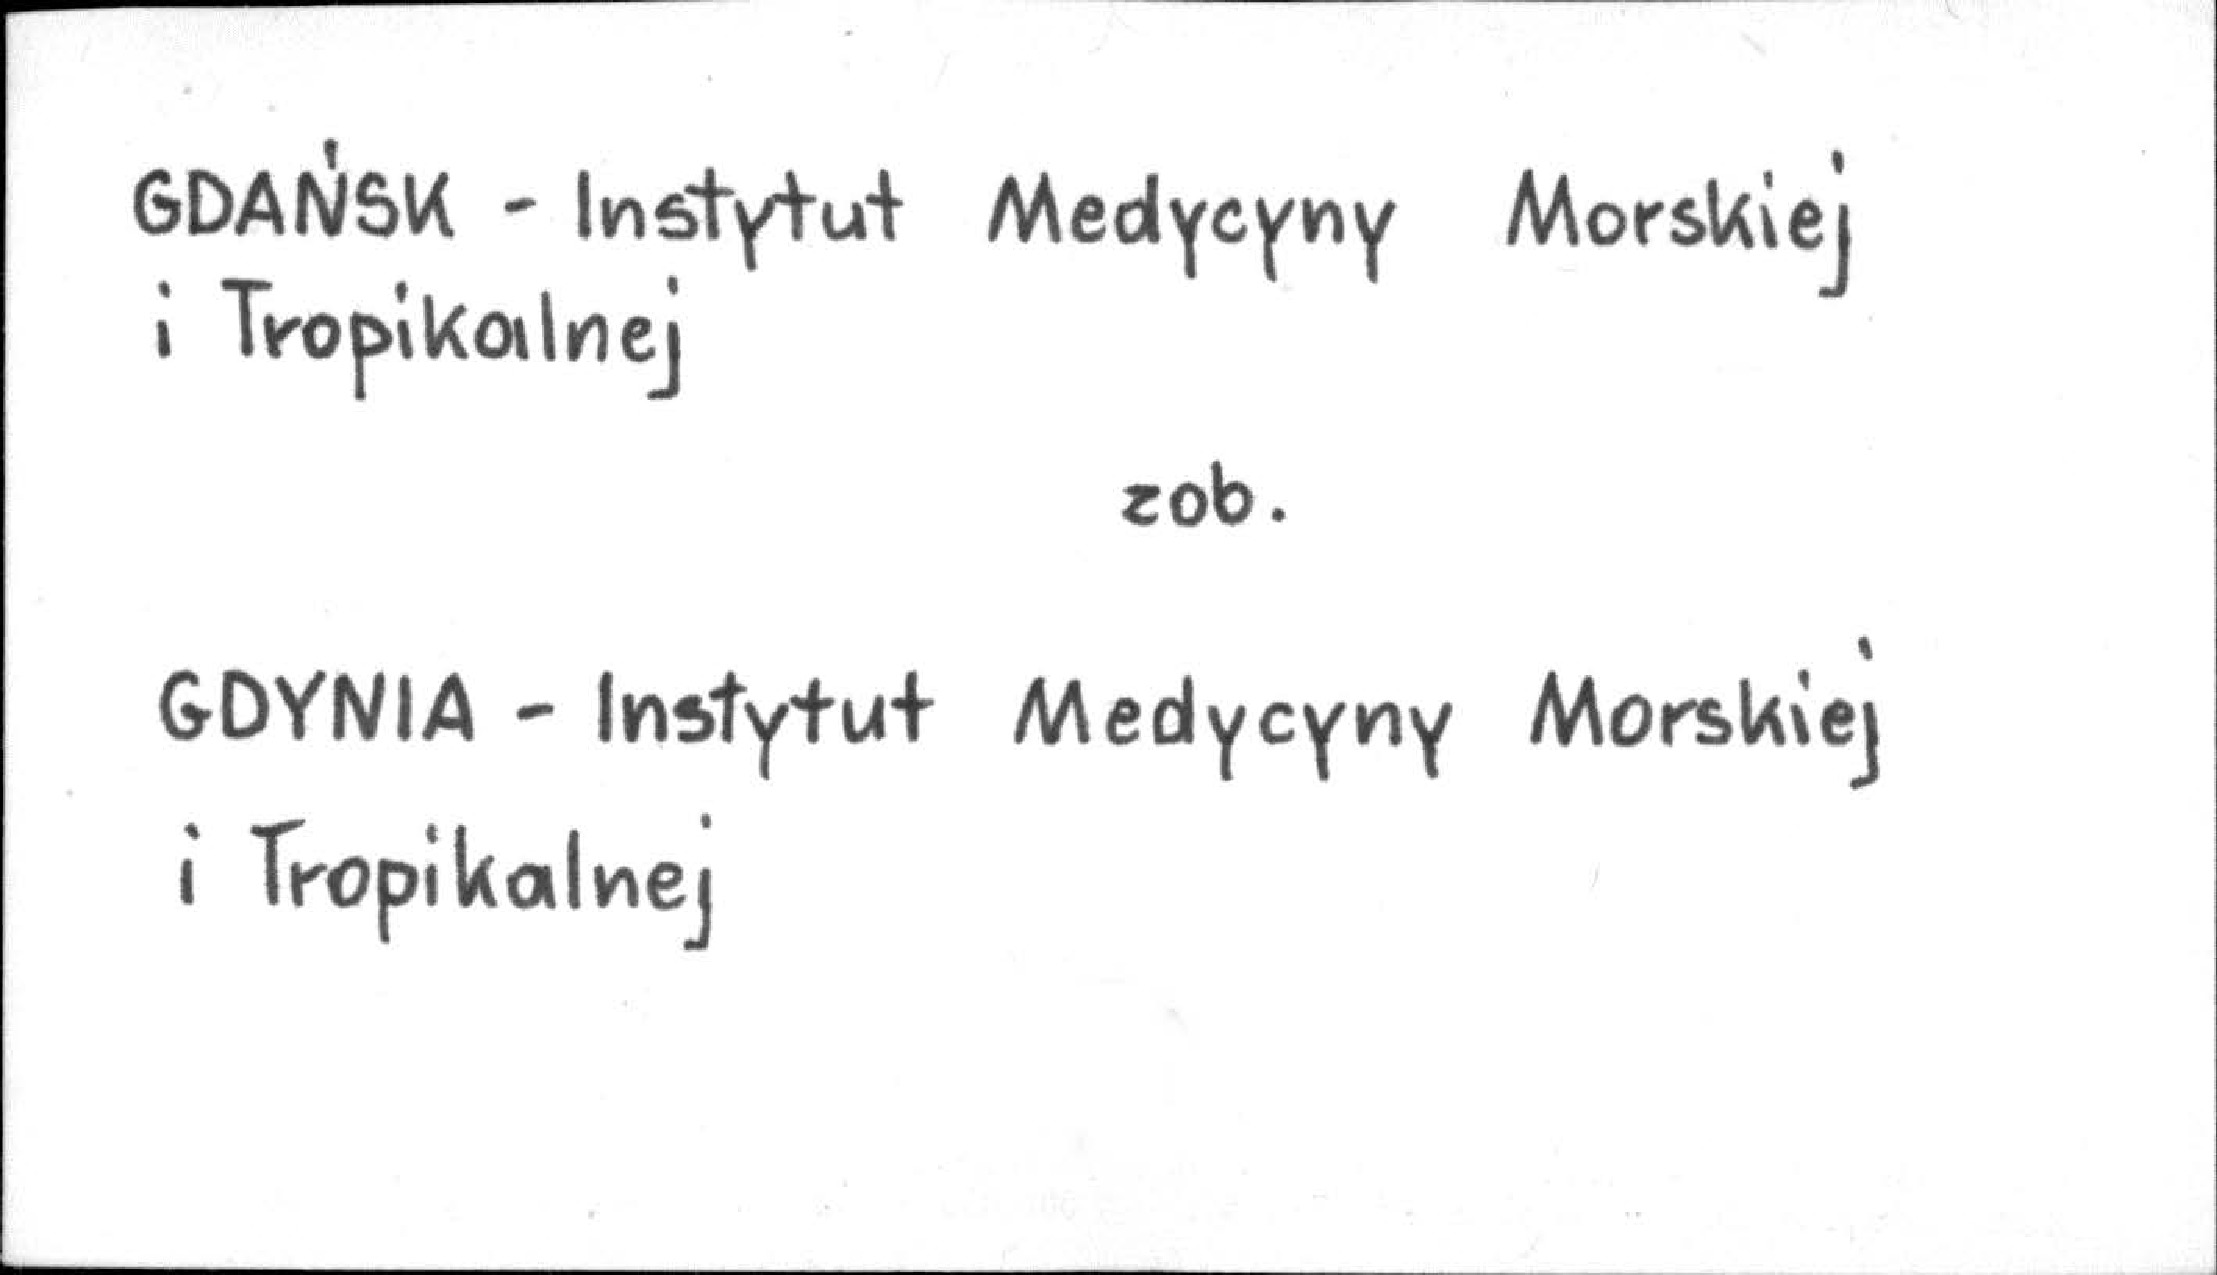 GDAŃSK - Instytut Medycyny Morskiej
i Tropikalnej
zob.
GDYNIA - Instytut Medycyny Morskiej
i Tropikalnej